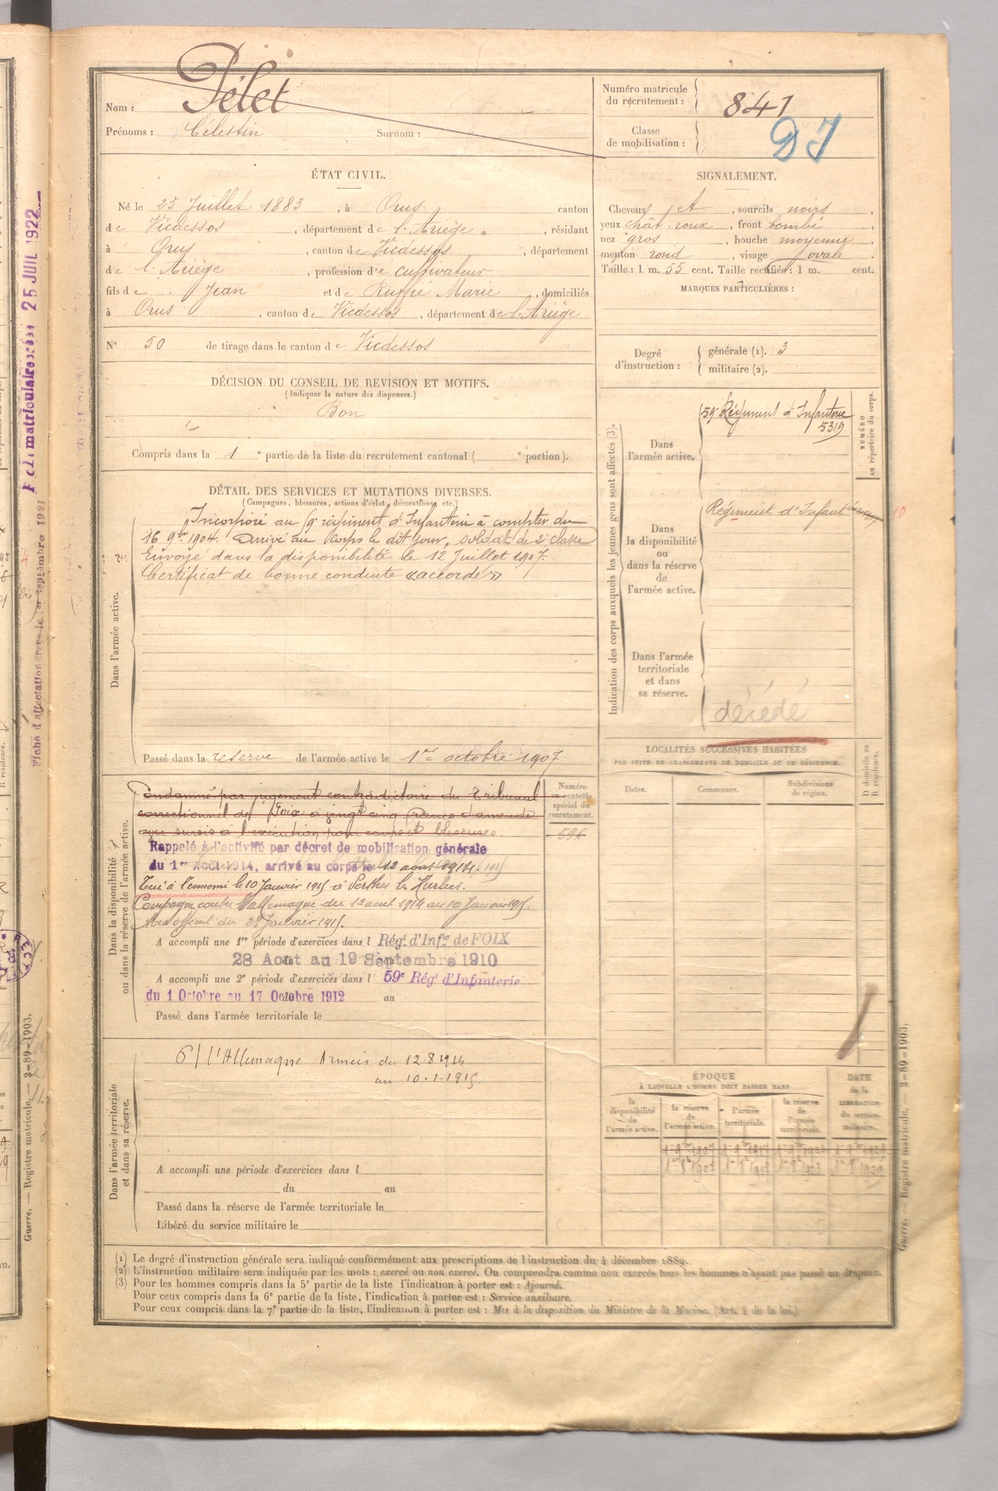 Nom : Pélet
Prénoms : Célestin Surnom :
Numéro matricule
du recrutement : 841
Classe
de mobilisation :
DJ
ÉTAT CIVIL.
Né le 25 Juillet 1883, à Orus canton
de Vicdessos, département de l'Ariège, résidant
à Orus, canton de Vicdessos, département
de l'Ariège, profession de cultivateur
fils de Jean et de Ruffié Marie, domiciliés
à Orus, canton de Vicdessos, département de l'Ariège
N° 50 de tirage dans le canton de Vicdessos
SIGNALEMENT.
Cheveux et, sourcils noirs,
yeux chât. roux, front bombé,
nez gros, bouche moyenne,
menton rond, visage ovale.
Taille : 1 m. 55 cent. Taille rectifiée : 1 m. cent.
MARQUES PARTICULIÈRES :
Degré
d'instruction :
générale (1). 3
militaire (2).
DÉCISION DU CONSEIL DE REVISION ET MOTIFS.
(Indiquer la nature des dispenses.)
Bon
Compris dans la 1e partie de la liste du recrutement cantonal (e portion).
DÉTAIL DES SERVICES ET MUTATIONS DIVERSES.
(Campagnes, blessures, actions d'éclat, décorations, etc.)
Dans l'armée active.
Incorporé au 59e régiment d'Infanterie à compter du
16 9bre 1904. Arrivé au corps le dit jour, soldat de 2e classe
Envoyé dans la disponibilité le 12 Juillet 1907.
Certificat de bonne conduite «accordé»
Passé dans la réserve de l'armée active le 1er octobre 1907
Indication des corps auxquels les jeunes gens sont affectés (3).
NUMÉRO
au répertoire du corps.
Dans
l'armée active.
59e Régiment d'Infanterie
5319
Dans
la disponibilité
ou
dans la réserve
de
l'armée active.
Régiment d'Infanterie
Dans l'armée
territoriale
et dans
sa réserve.
décédé
LOCALITÉS SUCCESSIVES HABITÉES
PAR SUITE DE CHANGEMENTS DE DOMICILE OU DE RÉSIDENCE.
Dates. Communes. Subdivisions
de région.
D domicile ou
R résidence.
Dans la disponibilité
ou dans la réserve de l'armée active.
Numéro
au contrôle
spécial du
recrutement.
696
Condamné par jugement contradictoire du Tribunal
correctionnel de Foix à vingt cinq francs d'amende
avec sursis à l'exécution pour coups et blessures
Rappelé à l'activité par décret de mobilisation générale
du 1er Août 1914, arrivé au corps le 12 août 1914.
Tué à l'ennemi le 10 Janvier 1915 à Perthes les Hurlus.
Campagne contre l'allemagne du 12 aout 1914 au 10 Janvier 1915.
Avis officiel du 28 Janvier 1915.
A accompli une 1re période d'exercices dans l Rég. d'Infie de FOIX
28 Aout au 19 Septembre 1910
A accompli une 2e période d'exercices dans l 59e Rég. d'Infanterie
du 1 Octobre au 17 Octobre 1912 au
Passé dans l'armée territoriale le
Dans l'armée territoriale
et dans sa réserve.
C/ l'Allemagne Armées du 12.8.1914
au 10.1.1915
A accompli une période d'exercices dans l
du au
Passé dans la réserve de l'armée territoriale le
Libéré du service militaire le
ÉPOQUE
À LAQUELLE L'HOMME DOIT PASSER DANS
DATE
de la
LIBÉRATION
du service
militaire.
la
disponibilité
de
l'armée active.
la réserve
de
l'armée active.
l'armée
territoriale.
la réserve
de
l'armée
territoriale.
(1) Le degré d'instruction générale sera indiqué conformément aux prescriptions de l'instruction du 4 décembre 1889.
(2) L'instruction militaire sera indiquée par les mots : exercé ou non exercé. On comprendra comme non exercés tous les hommes n'ayant pas passé au drapeau.
(3) Pour les hommes compris dans la 5e partie de la liste l'indication à porter est : Ajourné.
Pour ceux compris dans la 6e partie de la liste, l'indication à porter est : Service auxiliaire.
Pour ceux compris dans la 7e partie de la liste, l'indication à porter est : Mis à la disposition du Ministre de la Marine. (Art. 4 de la loi.)
Guerre. — Registre matricule. — 2-89-1903.
Guerre. — Registre matricule. — 2-89-1903.
25 JUIL 1922